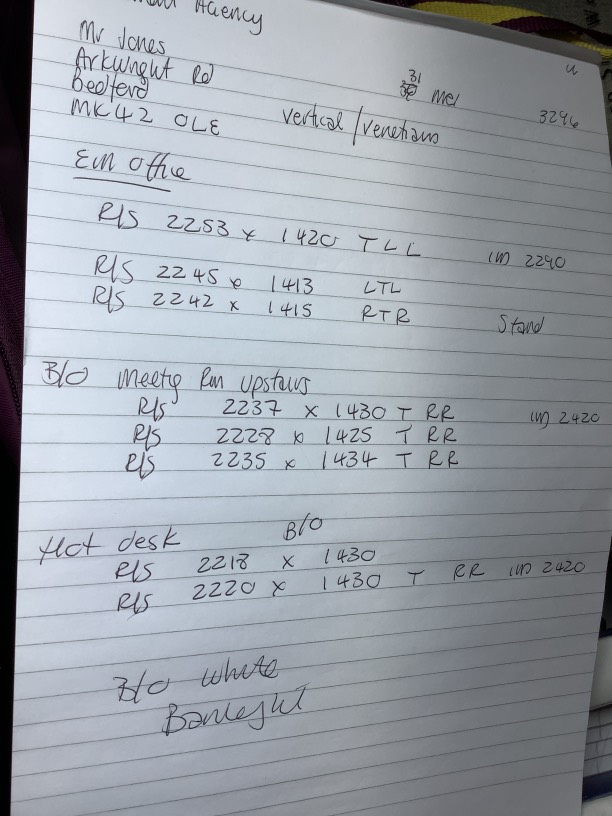 Agency
Mr Jones
Arkwright Rd
Bedford
MK42 OLE
31 Mel
3296
Vertical / Venetians
Em Office
R/S 2253 x 1420 TLL (m) 2290
R/S 2245 x 1413 LTL
R/S 2242 x 1415 RTR Stand
B/O Meetg Rm Upstairs
R/S 2237 x 1430 T RR (m) 2420
R/S 2228 x 1425 T RR
R/S 2235 x 1434 T RR
Hot desk B/O
R/S 2218 x 1430
R/S 2220 x 1430 T RR (m) 2420
B/O White
Banlight